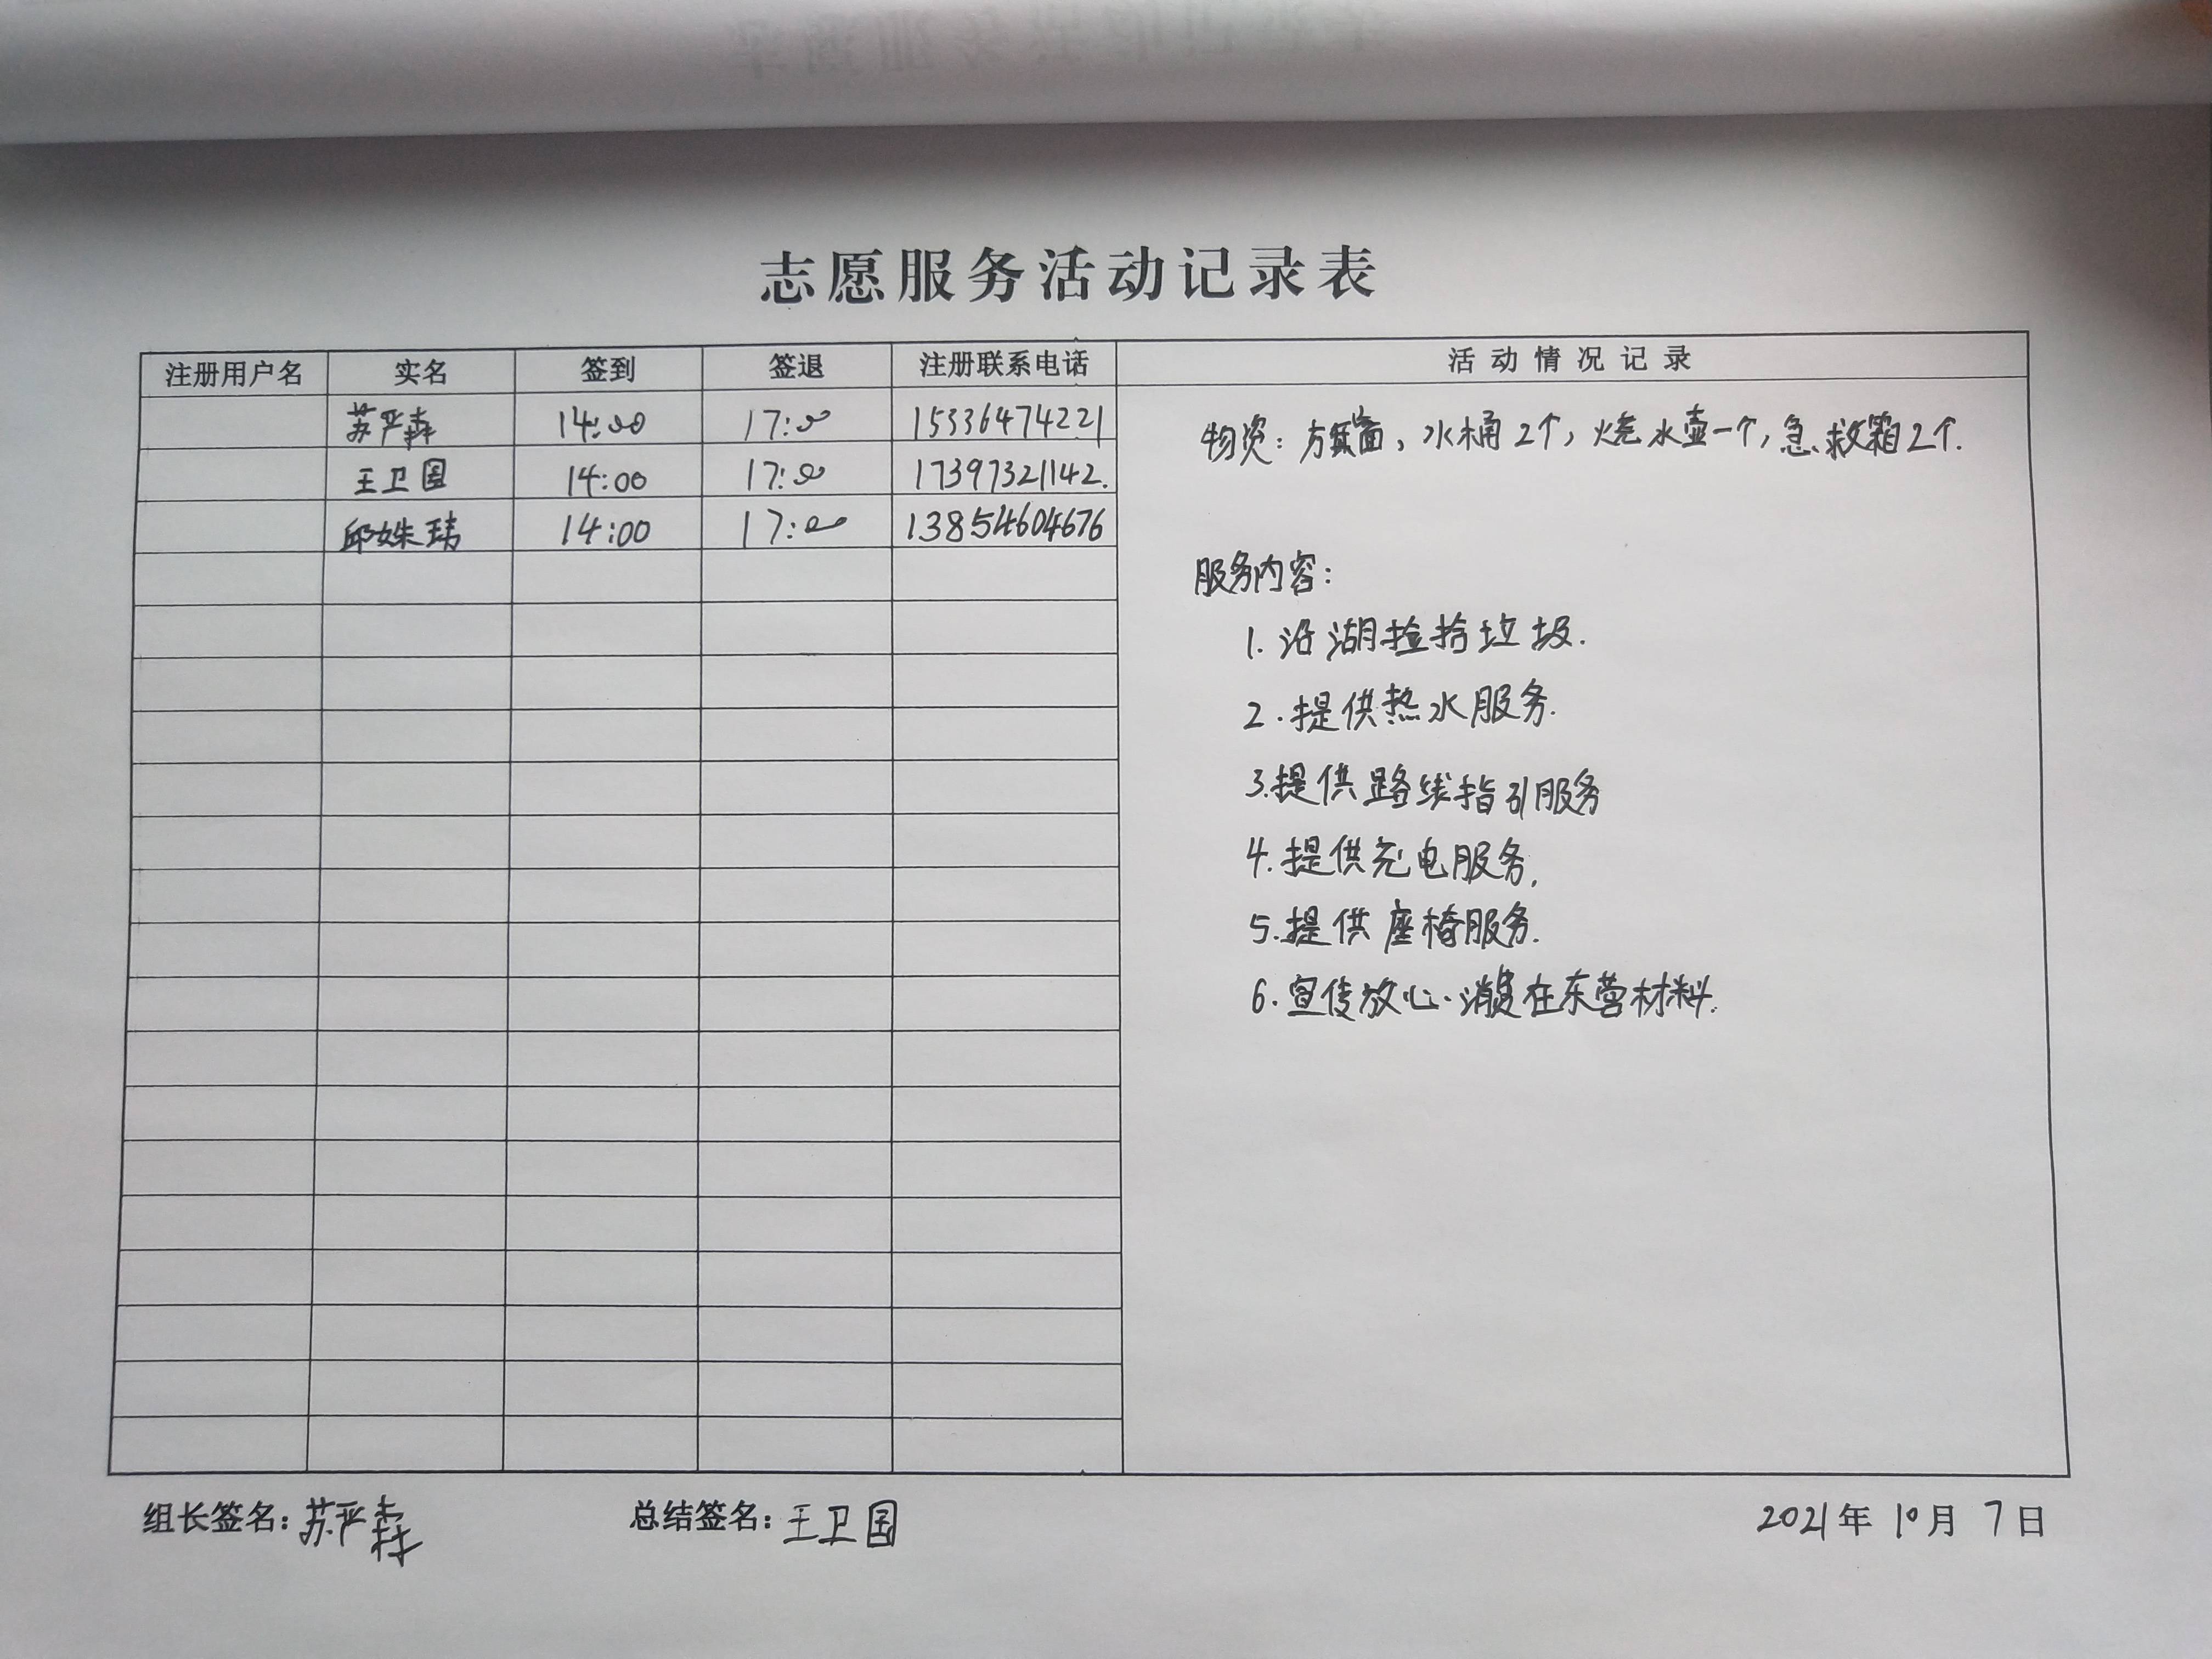 志愿服务活动记录表
注册用户名 实名 签到 签退 注册联系电话 活动情况记录
苏严森 14:00 17:00 15336474221
王卫国 14:00 17:00 17397321142.
邱姝玮 14:00 17:00 13854604676
物资: 水桶2个, 烧水壶一个, 急救箱2个.
服务内容:
1. 沿湖捡拾垃圾.
2. 提供热水服务.
3.提供路线指引服务
4. 提供充电服务.
5.提供座椅服务.
6. 宣传放心消费在东营材料.
组长签名: 苏严森 总结签名: 王卫国 2021年 10月 7日